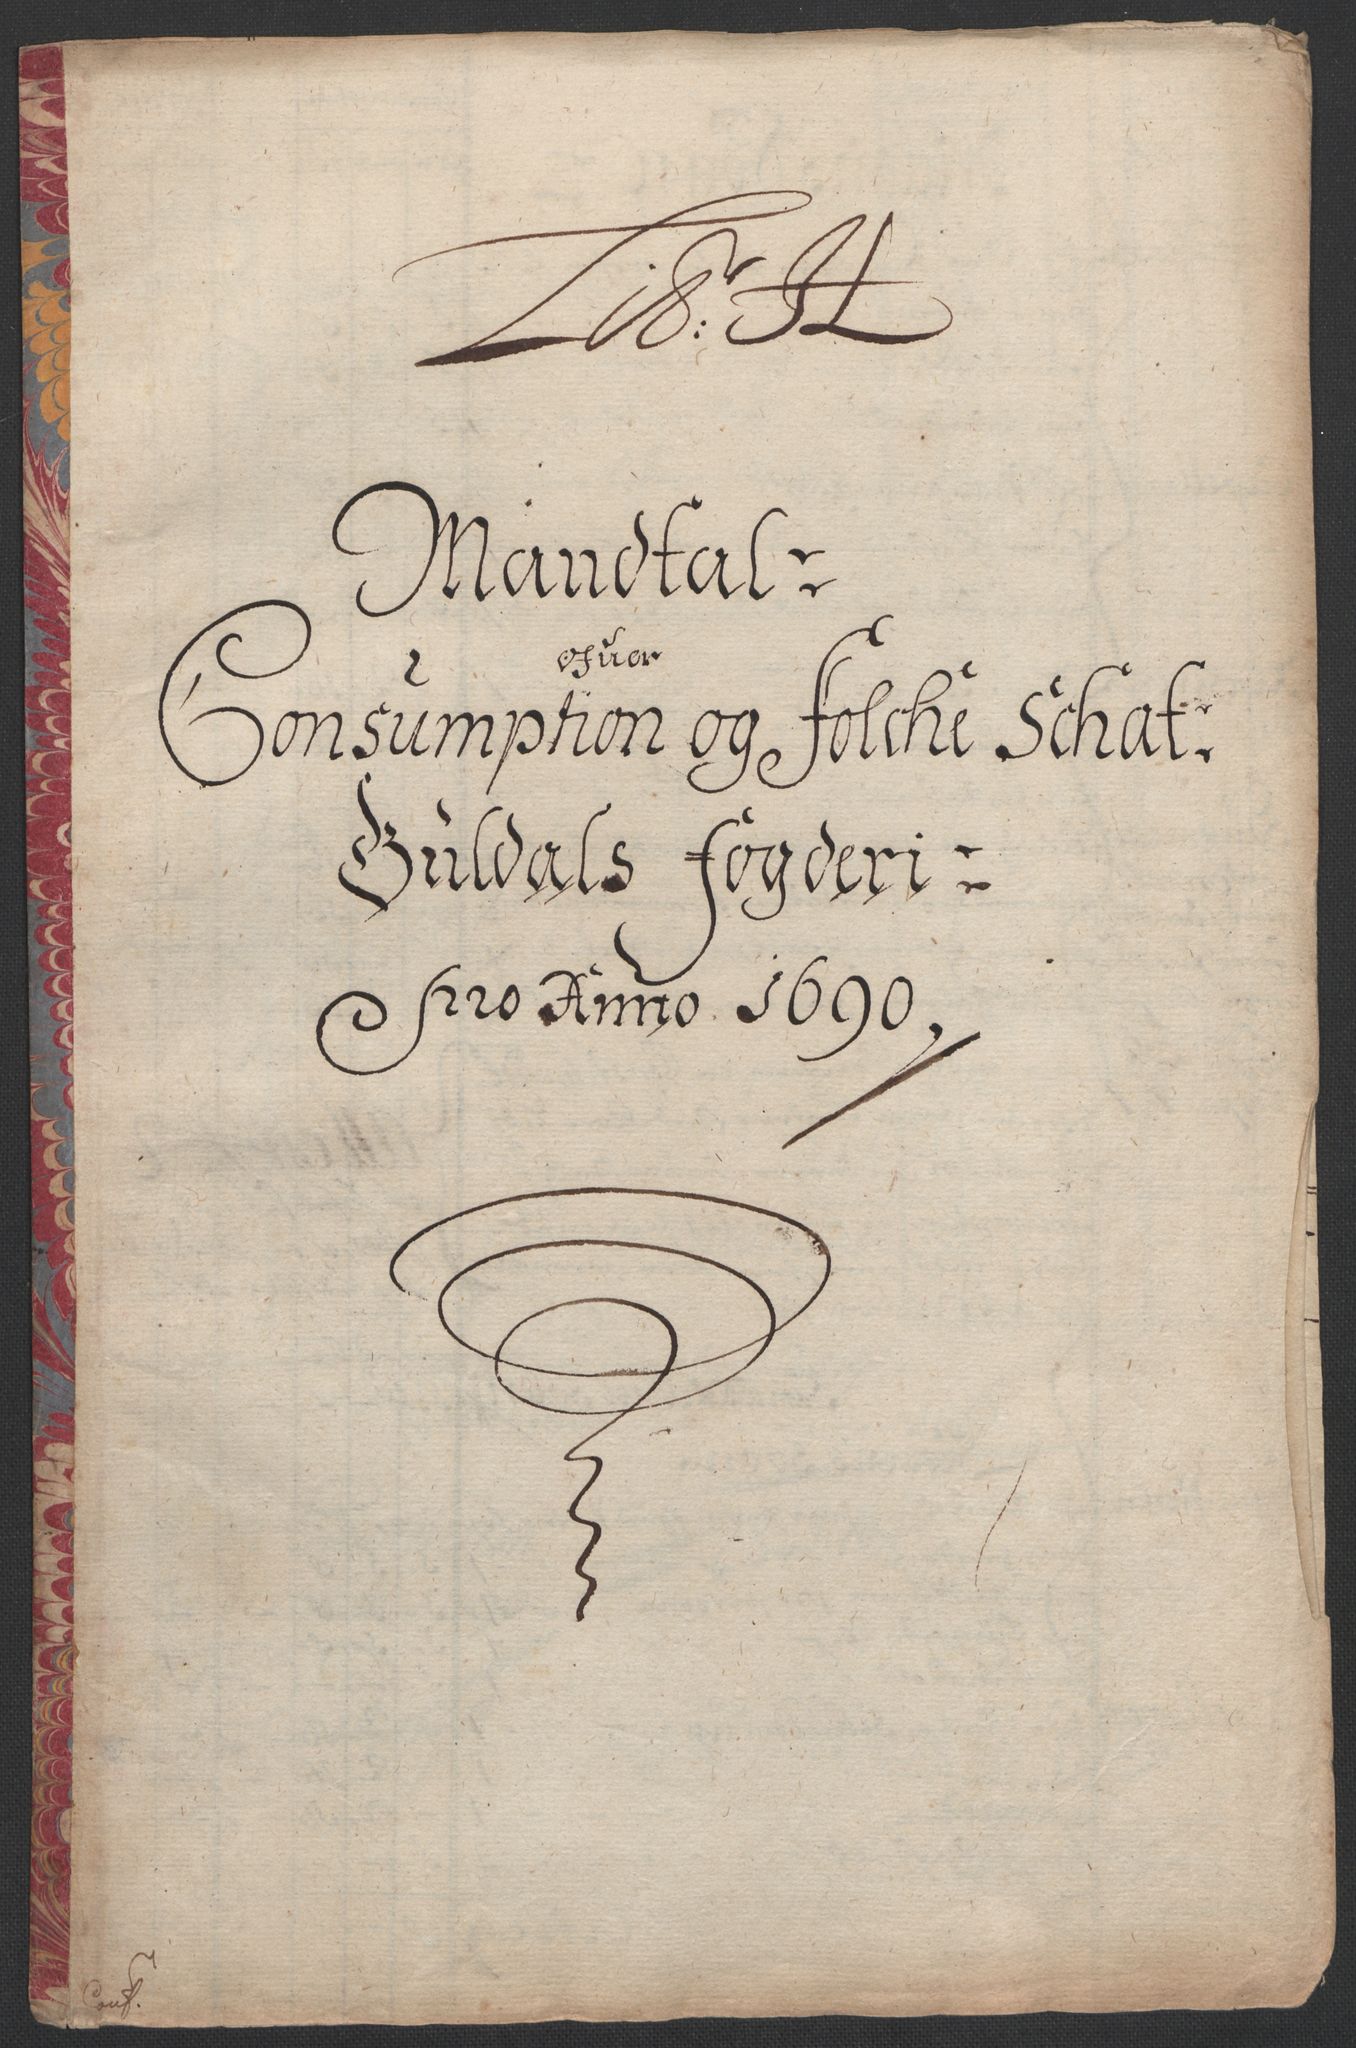 Lit: H
Mandtal
ofuer
Consumption og folche Schat
Guldals fogderi
pro Anno 1690